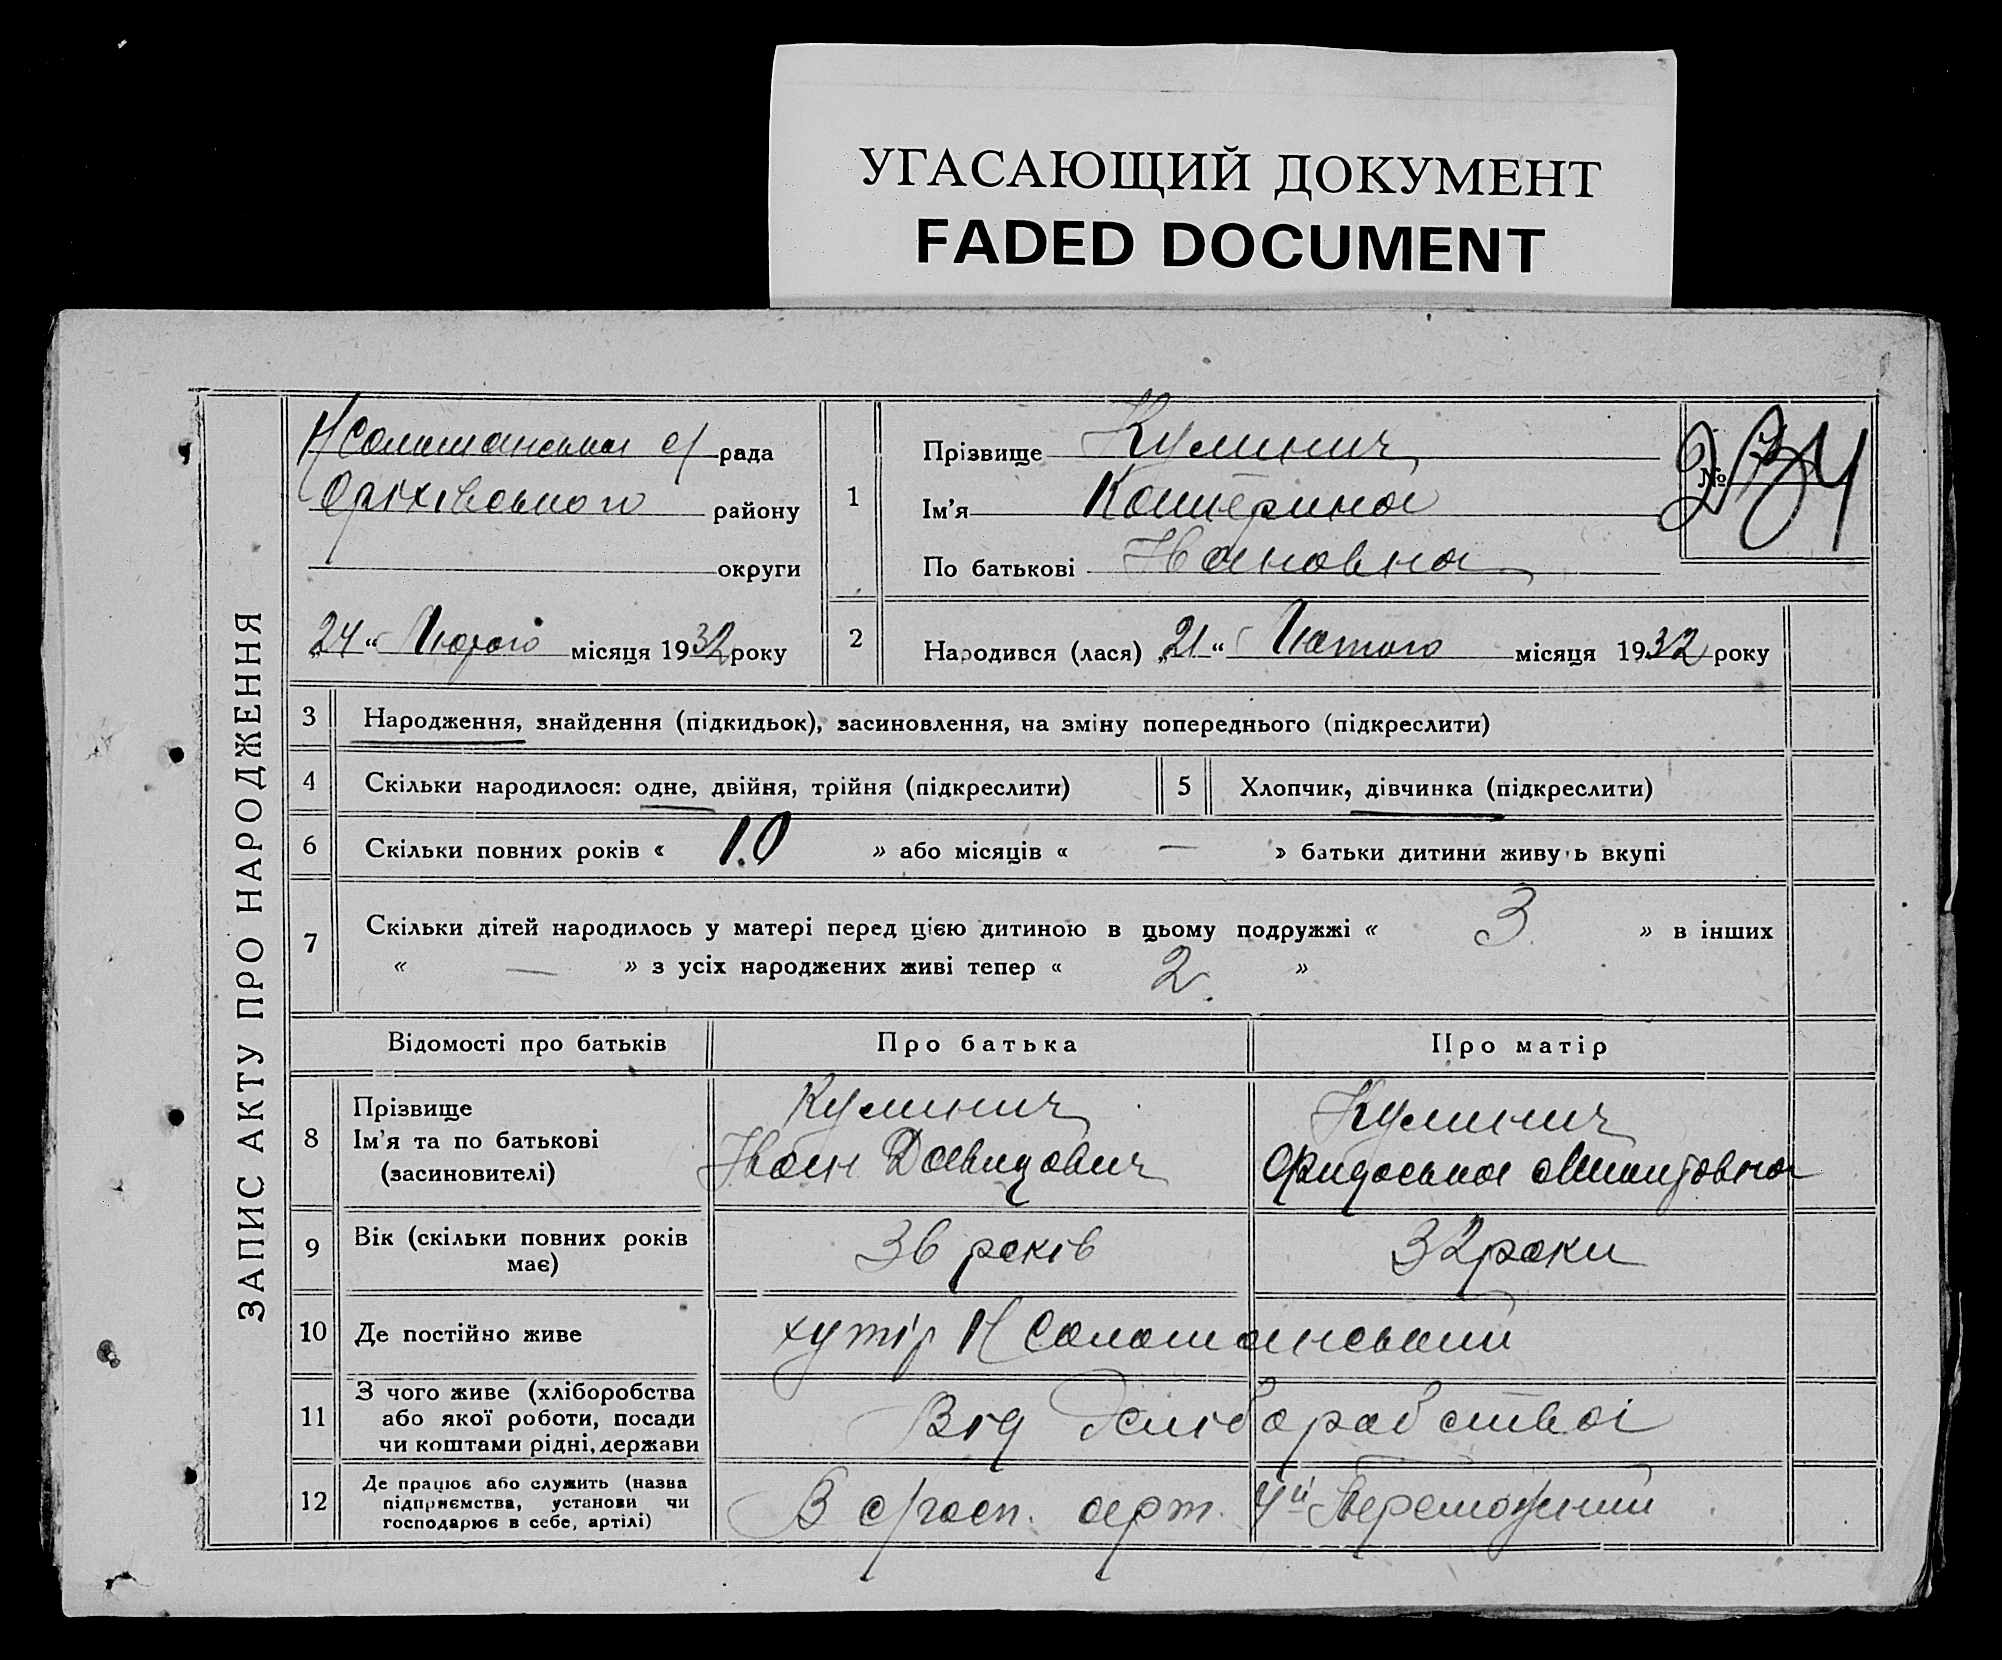 УГАСАЮЩИЙ ДОКУМЕНТ
FADED DOCUMENT
ЗАПИС АКТУ ПРО НАРОДЖЕННЯ
рада
Оріхівського району
округи
„24“ Лютого місяця 1932 року
1
Прізвище Кулинич
Ім'я Катерина
По батькові Івановна
№
234
2
Народився (лася) „21“ Лютого місяця 1932 року
3 Народження, знайдення (підкидьок), засиновлення, на зміну попереднього (підкреслити)
4 Скільки народилося: одне, двійня, трійня (підкреслити)
5 Хлопчик, дівчинка (підкреслити)
6 Скільки повних років « 10 » або місяців « — » батьки дитини живуть вкупі
7 Скільки дітей народилось у матері перед цією дитиною в цьому подружжі « 3 » в інших
« — » з усіх народжених живі тепер « 2. »
Відомості про батьків Про батька Про матір
8
Прізвище
Ім'я та по батькові
(засиновителі)
Кулинич
Іван Давидович
Кулинич
9 Вік (скільки повних років
має)
36 років
32 роки
10 Де постійно живе
хутір
11
З чого живе (хліборобства
або якої роботи, посади
чи коштами рідні, держави
Від Хліборобства
12
Де працює або служить (назва
підприємства, установи чи
господарює в себе, артілі)
В с/госп. арт.